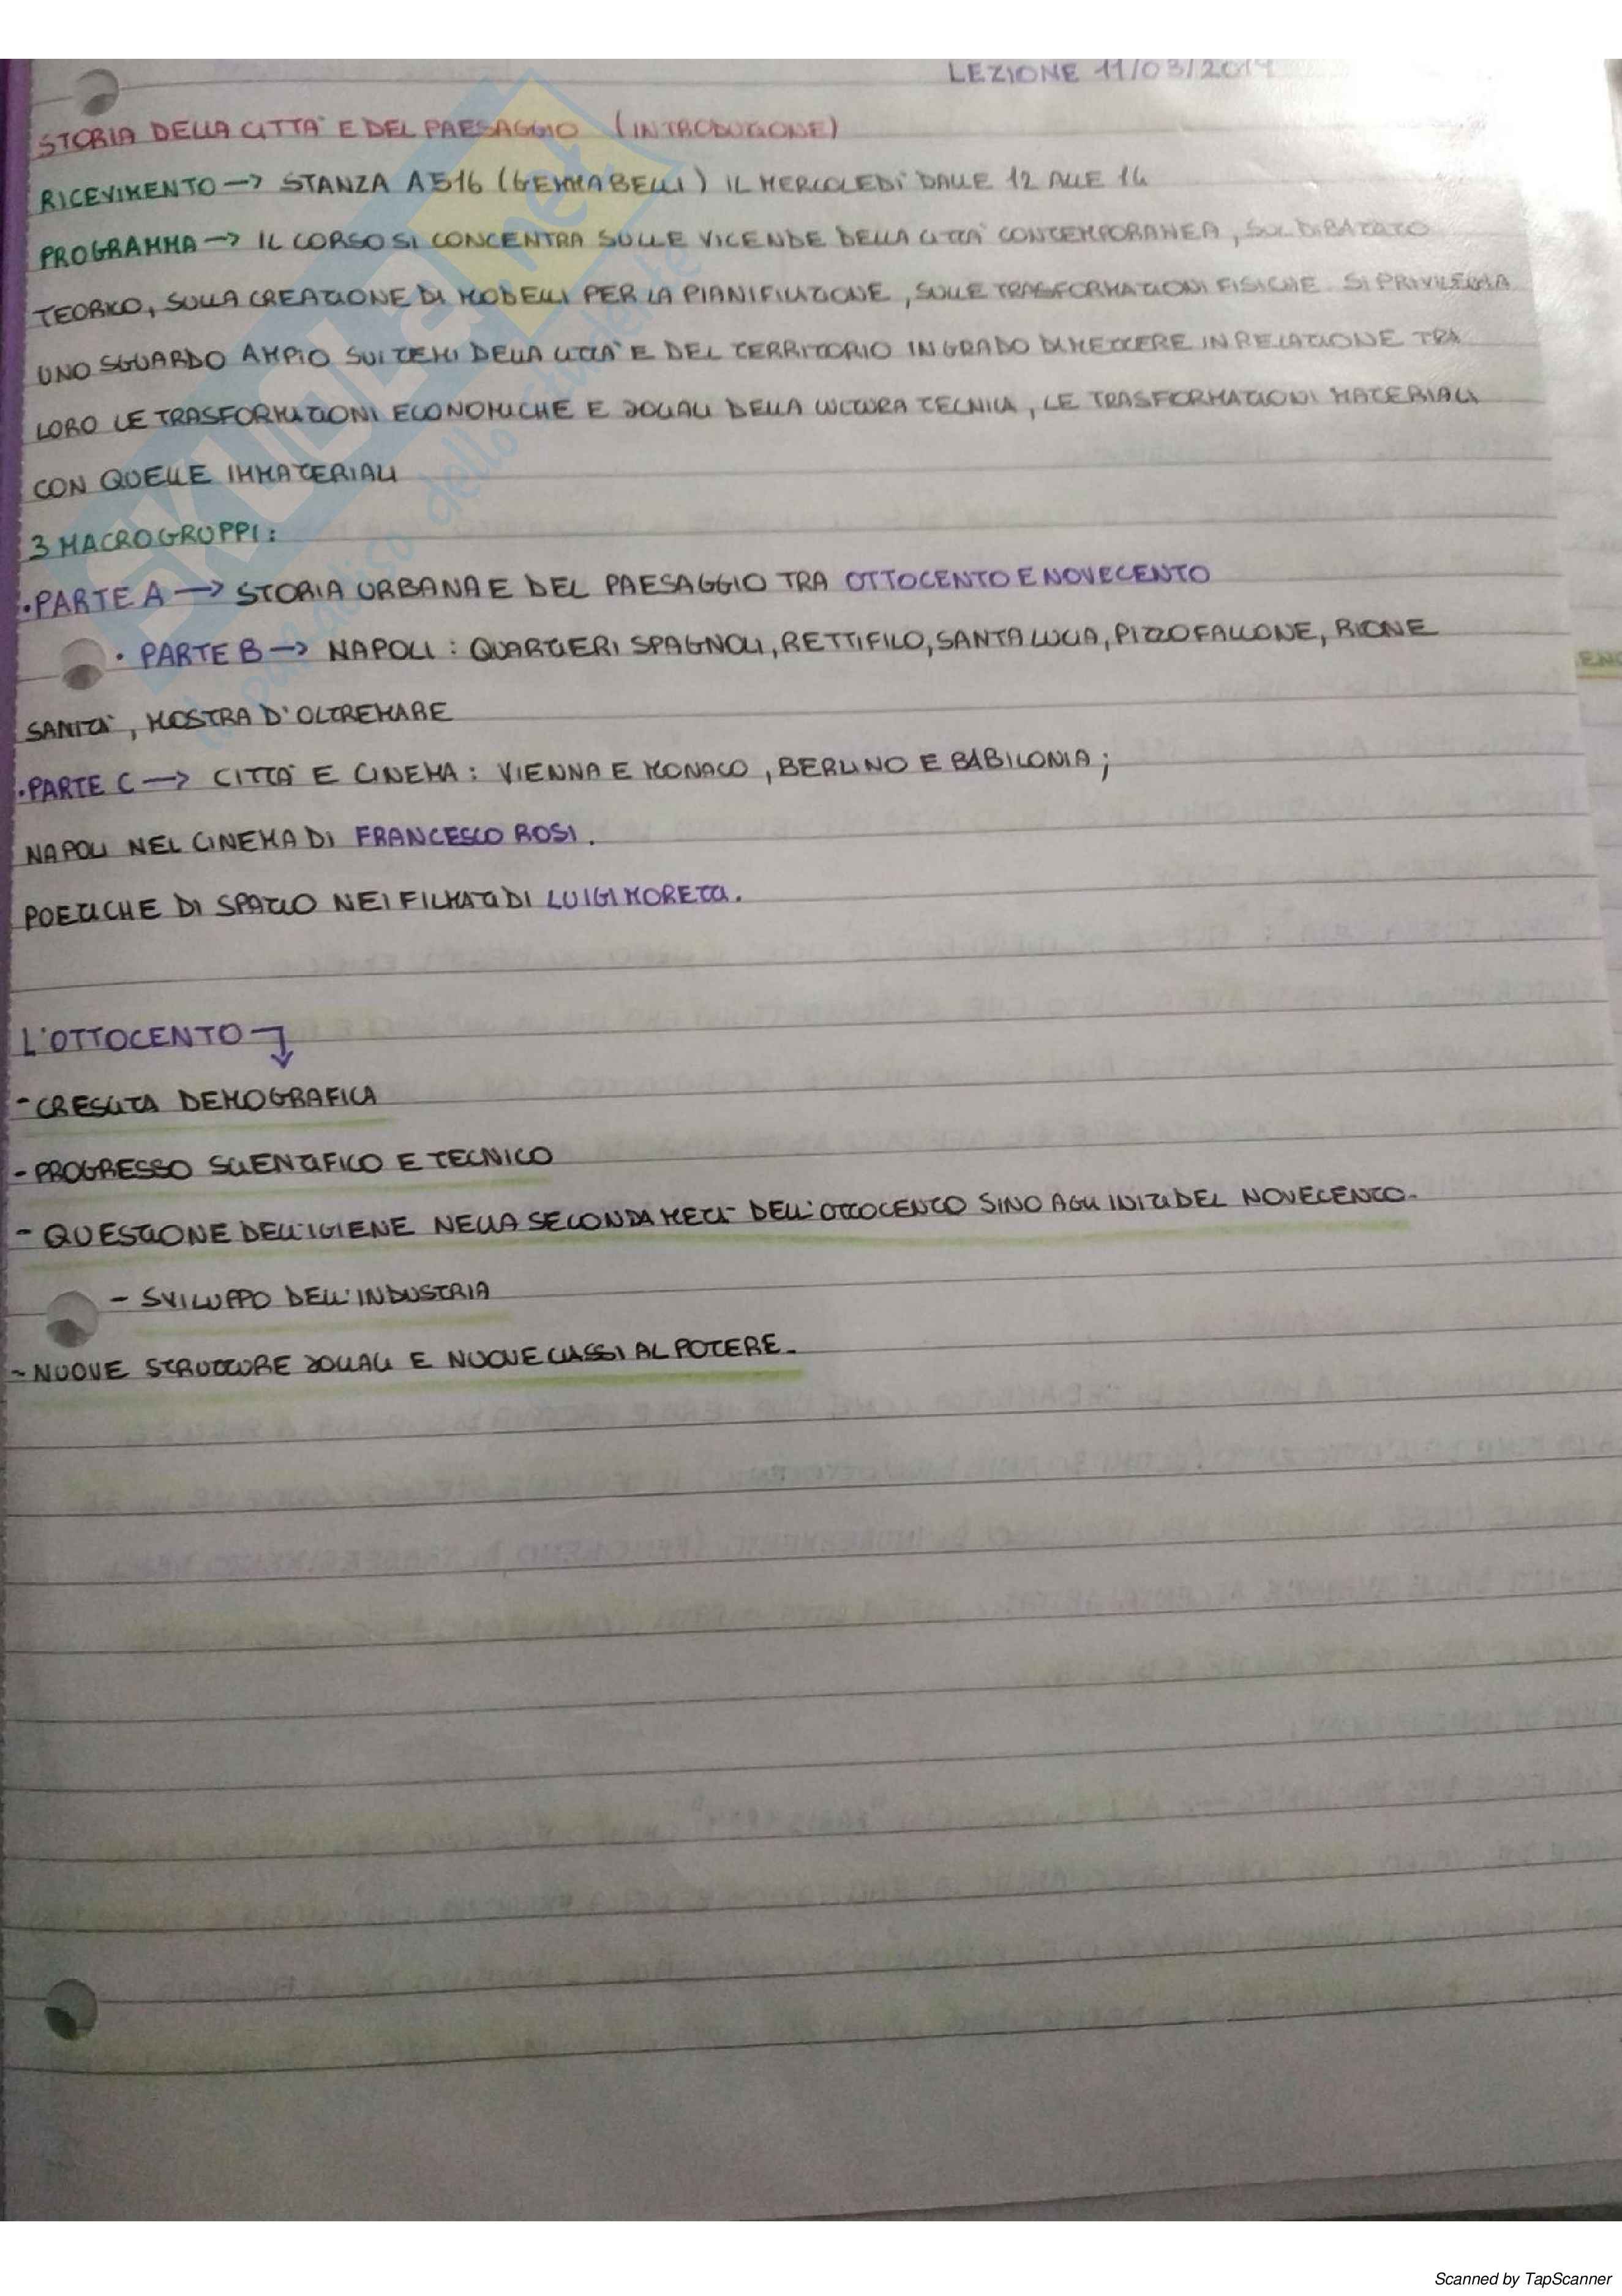 LEZIONE 11/03/2019
STORIA DELLA CITTA' E DEL PAESAGGIO (INTRODUZIONE)
RICEVIMENTO → STANZA A516 (GEMMA BELLI) IL MERCOLEDI' DALLE 12 ALLE 14
PROGRAMMA → IL CORSO SI CONCENTRA SULLE VICENDE DELLA CITTA' CONTEMPORANEA, SUL DIBATTITO
TEORICO, SULLA CREAZIONE DI MODELLI PER LA PIANIFICAZIONE, SULLE TRASFORMAZIONI FISICHE. SI PRIVILEGIA
UNO SGUARDO AMPIO SUI TEMI DELLA CITTA' E DEL TERRITORIO IN GRADO DI METTERE IN RELAZIONE TRA
LORO LE TRASFORMAZIONI ECONOMICHE E SOCIALI DELLA CULTURA TECNICA, LE TRASFORMAZIONI MATERIALI
CON QUELLE IMMATERIALI
3 MACROGRUPPI:
• PARTE A → STORIA URBANA E DEL PAESAGGIO TRA OTTOCENTO E NOVECENTO
• PARTE B → NAPOLI: QUARTIERI SPAGNOLI, RETTIFILO, SANTA LUCIA, PIZZOFALCONE, RIONE
SANITA', MOSTRA D'OLTREMARE
• PARTE C → CITTA' E CINEMA: VIENNA E MONACO, BERLINO E BABILONIA;
NAPOLI NEL CINEMA DI FRANCESCO ROSI.
POETICHE DI SPAZIO NEI FILMATI DI LUIGI MORETTI.
L'OTTOCENTO
- CRESCITA DEMOGRAFICA
- PROGRESSO SCIENTIFICO E TECNICO
- QUESTIONE DELL'IGIENE NELLA SECONDA METÀ DELL'OTTOCENTO SINO AGLI INIZI DEL NOVECENTO.
- SVILUPPO DELL'INDUSTRIA
- NUOVE STRUTTURE SOCIALI E NUOVE CLASSI AL POTERE.
SKUOLA.net
il paradiso dello studente
Scanned by TapScanner